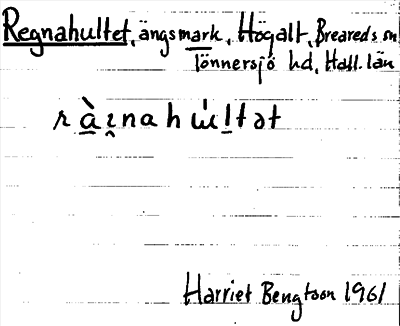 Regnahultet, ängsmark, Högalt, Breareds sn
Tönnersjö hd, Hall. län
Harriet Bengtson 1961